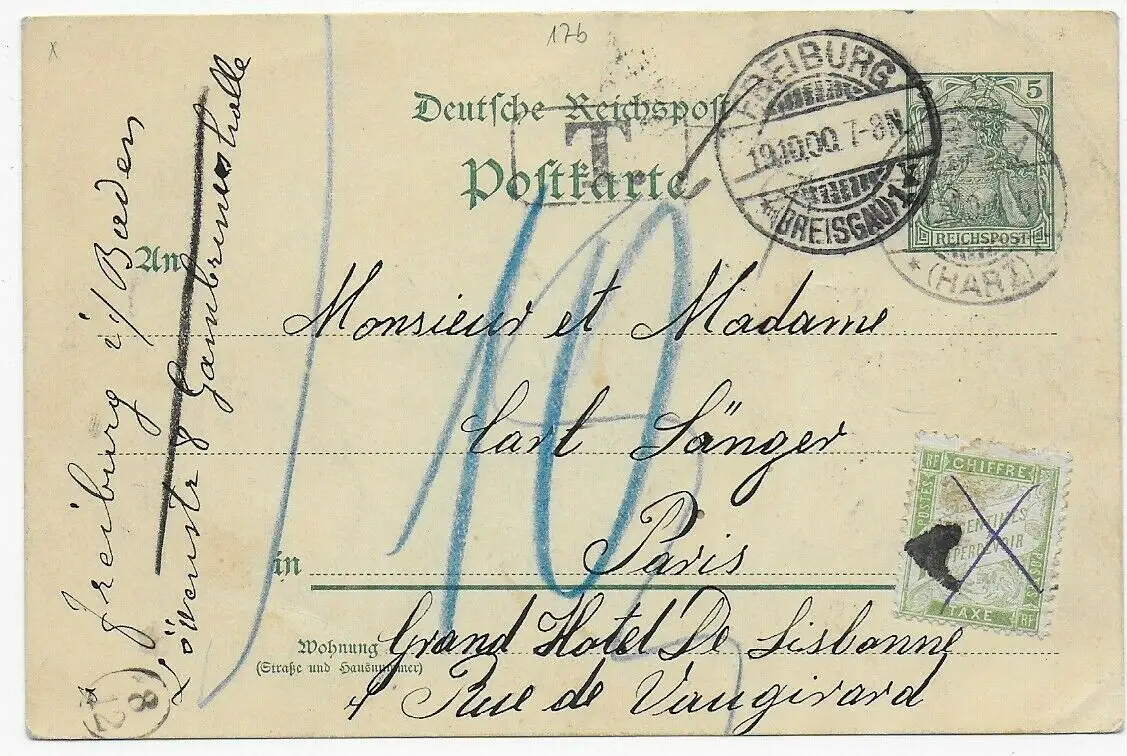 x
17b
Deutsche Reichspost
Postkarte
T.
FREIBURG
19.10.00. 7-8N.
(BREISGAU) 1.
5
REICHSPOST
* (HARZ) *
An
Monsieur et Madame
Carl Sänger
in Paris
Wohnung Grand Hotel De Lisbonne
(Straße und Hausnummer)
4 Rue de Vaugirard
10
Freiburg i/Baden
Löwenstr 8 Gambrinushalle
RF CHIFFRE RF
POSTES
CENTIMES
PERCEVOIR
TAXE RF
8
12